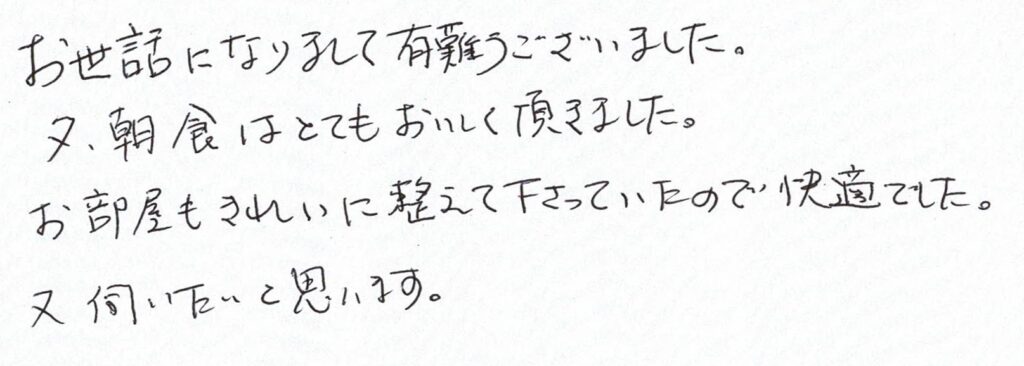 お世話になりまして有難うございました。
夕、朝食はとてもおいしく頂きました。
お部屋もきれいに整えて下さっていたので快適でした。
又伺いたいと思います。